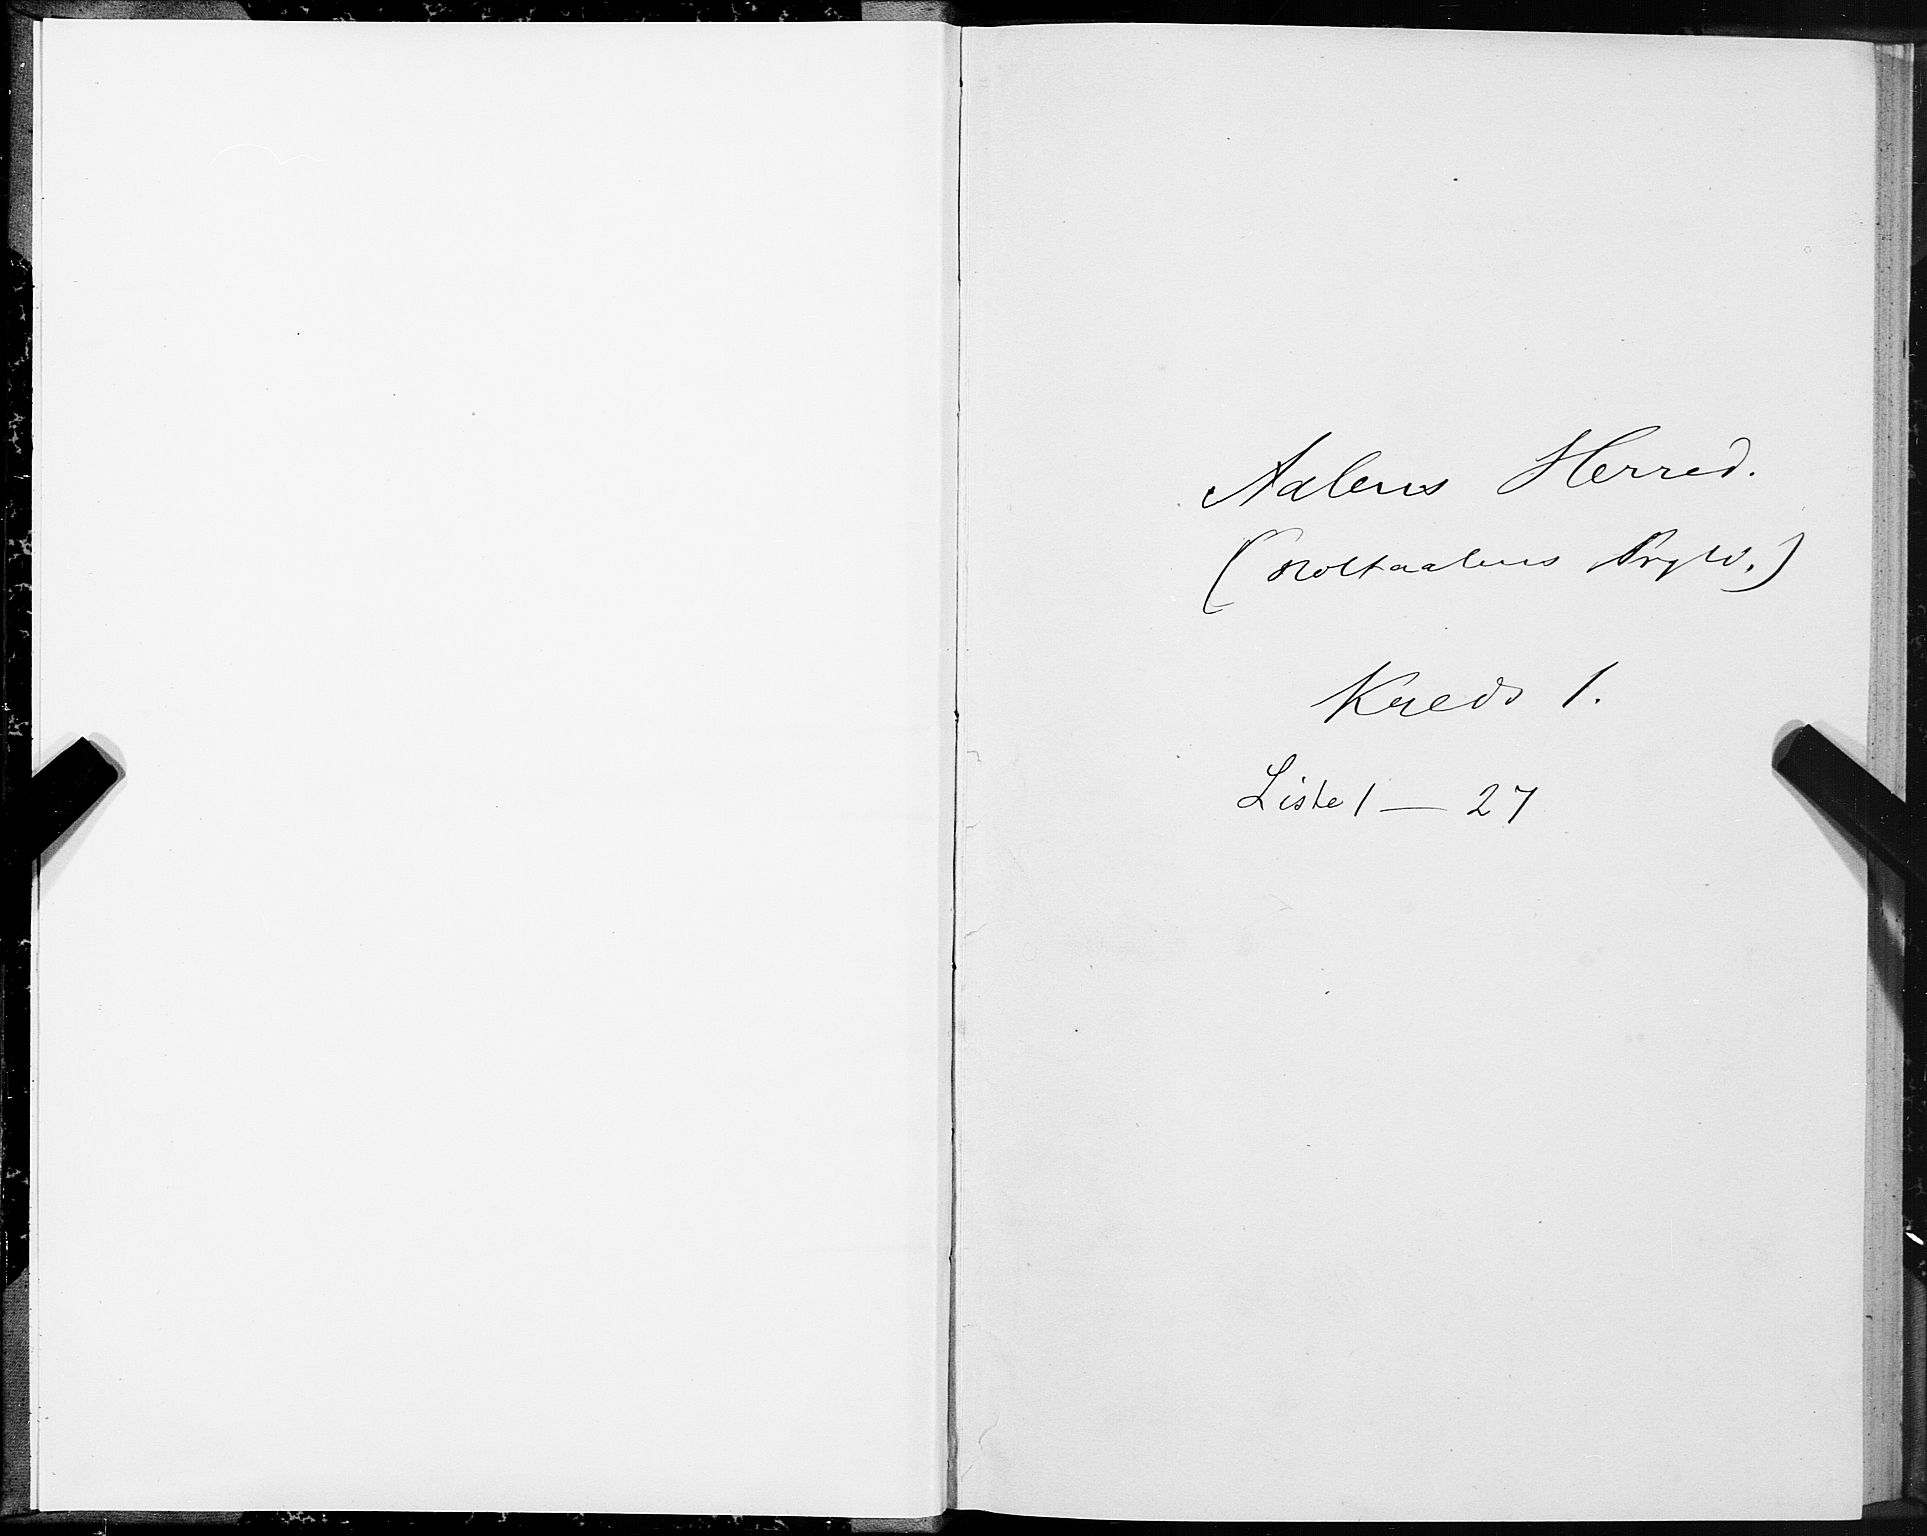 Aalens Herred.
(Holtaalens Prgld.)
Kreds 1.
Liste 1 — 27